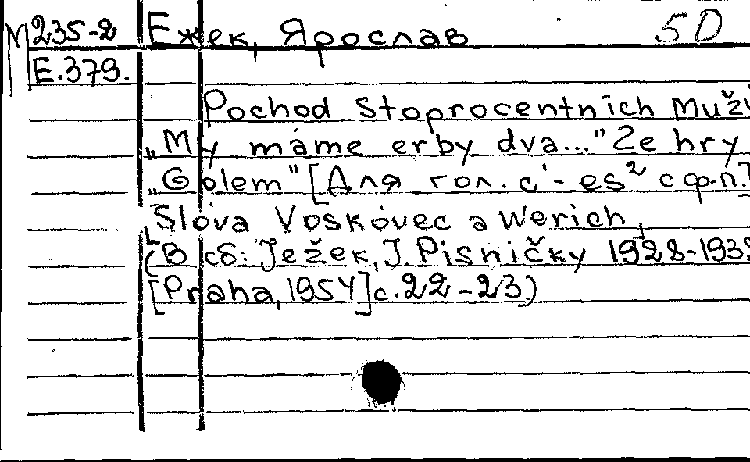 М235-2 Ежек, Ярослав 5D
E.379.
Pochod Stoprocentnich Muži
„My máme erby dva..." Ze hry
„Golem" [Для гол. c'-es² с ф-п.]
Slova Voskovec a Werich,
(В сб: Ježek, J. Pisničky 1928-193
[Praha, 1954] c. 22-23)